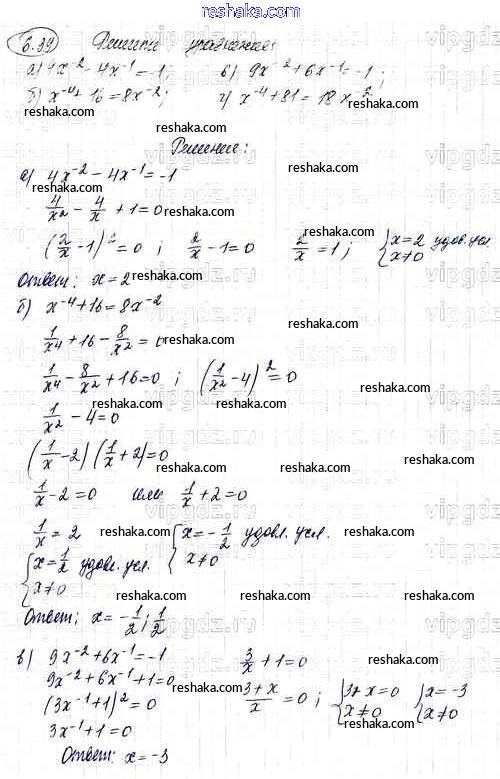 www.reshaka.ru
6.39 Решить уравнение:
а) 4x⁻² - 4x⁻¹ = -1; в) 9x⁻² + 6x⁻¹ = -1;
б) x⁻⁴ + 16 = 8x⁻²; г) x⁻⁴ + 81 = 18x⁻²
reshaka.ru
Решение:
а) 4x⁻² - 4x⁻¹ = -1
reshaka.ru
4/x² - 4/x + 1 = 0
(2/x - 1)² = 0; 2/x - 1 = 0 2/x = 1; { x = 2 удов. усл. x ≠ 0
Ответ: x = 2
б) x⁻⁴ + 16 = 8x⁻²
1/x⁴ + 16 - 8/x² = 0
1/x⁴ - 8/x² + 16 = 0; (1/x² - 4)² = 0
1/x² - 4 = 0
(1/x - 2)(1/x + 2) = 0
1/x - 2 = 0 или 1/x + 2 = 0
1/x = 2 { x = -1/2 удовл. усл. x ≠ 0
{ x = 1/2 удовл. усл. x ≠ 0
Ответ: x = -1/2; 1/2
в) 9x⁻² + 6x⁻¹ = -1 3/x + 1 = 0
9x⁻² + 6x⁻¹ + 1 = 0 (3 + x)/x = 0; { 3 + x = 0 x ≠ 0 { x = -3 x ≠ 0
(3x⁻¹ + 1)² = 0
3x⁻¹ + 1 = 0
Ответ: x = -3
vipgdz.ru